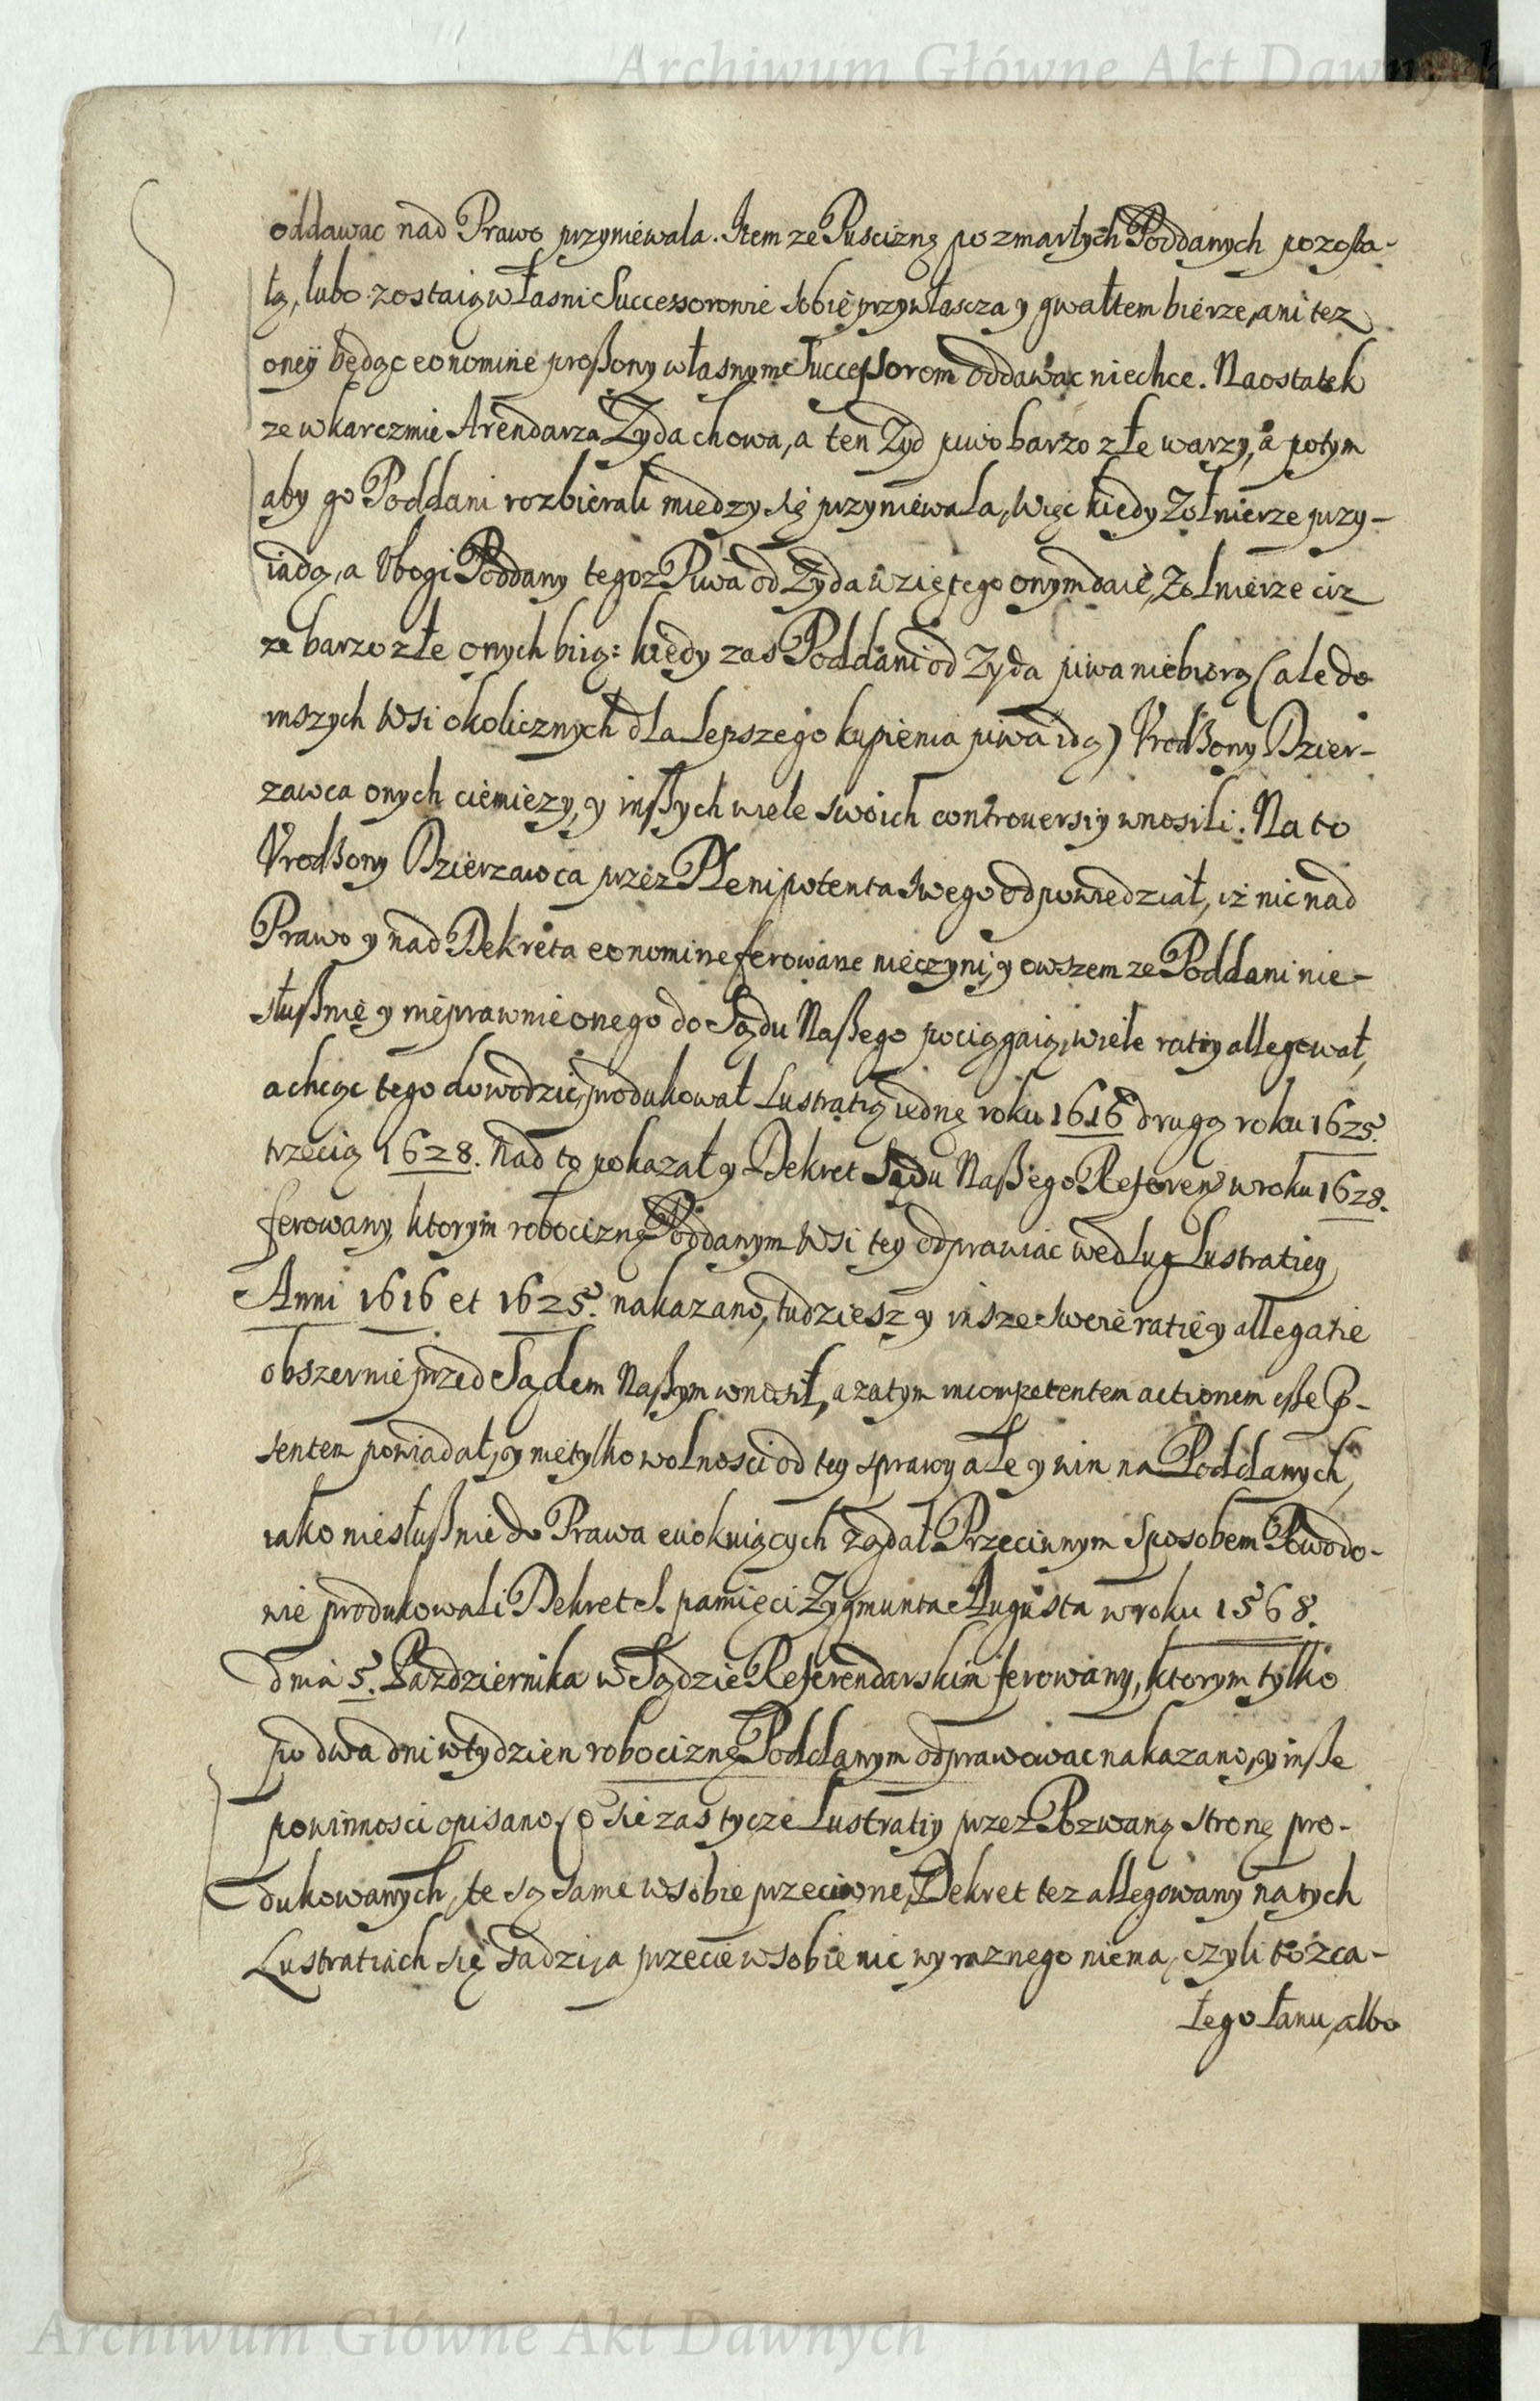 Archiwum Główne Akt Dawnych
oddawac nad Prawo przyniewala. Item ze Puscizną po zmarłych Poddanych pozosta-
łą, lubo zostaią własni Successorowie sobie przywłascza y gwałtem bierze, ani tez
oneÿ będąc eo nomine proßony własnym Succeßorom oddawac niechce. Naostatek
ze w karczmie Arendarza Zyda chowa, a ten Zyd piwo barzo złe warzy, a potym
aby go Poddani rozbierali miedzy się przyniewala, więc kiedy Zołnierze przy-
iadą, a Vbogi Poddany tegoz Piwa od Zyda wziętego onym daie, Zołnierze ciz
ze barzo złe onych biią: kiedy zas Poddani od Zyda piwa niebiorą (ale do
inszych wsi okolicznych dla lepszego kupienia piwa idą) Vrodzony Dzier-
zawca onych ciemiezy, y inßych wiele swoich controuersiy wnosili. Na to
Vrodzony Dzierzawca przez Plenipotenta swego odpowiedział, iż nic nad
Prawo y nad Dekreta eo nomine ferowane nieczyni, y owszem ze Poddani nie-
słußnie y nieprawnie onego do Sądu Naßego pociągaią, wiele ratiy allegował,
a chcąc tego dowodzic, produkował Lustratią iednę roku 1616 drugą roku 1625.
trzecią 1628. nad to pokazał y Dekret Sądu Naßego Referen w roku 1628.
ferowany, ktorym robociznę Poddanym wsi tey odprawiac według Lustratiey
Anni 1616 et 1625. nakazano, tudziesz y insze swoie ratie y allegatie
obszernie przed Sądem Naßym wnosił, a zatym incompetentem actionem eße P-
sentem powiadał, y nietylko wolnosci od tey sprawy ale y win na Poddanych,
iako niesłußnie do Prawa euokuiących żądał Przeciwnym sposobem Powodo-
wie produkowali Dekret S. pamięci Zygmunta Augusta w roku 1568.
dnia 5. Pazdziernika w Sądzie Referendarskim ferowany, ktorym tylko
po dwa dni w tydzien robociznę Poddanym odprawowac nakazano, y inße
powinnosci opisano, Co sie zas tycze Lustratiy przez Pozwaną stronę pro-
dukowanych, te są same w sobie przeciwne, Dekret tez allegowany na tych
Lustratiach się sadzi, a przecie w sobie nic wyraznego niema, czyli to z ca-
łego łanu, albo
Archiwum Główne Akt Dawnych